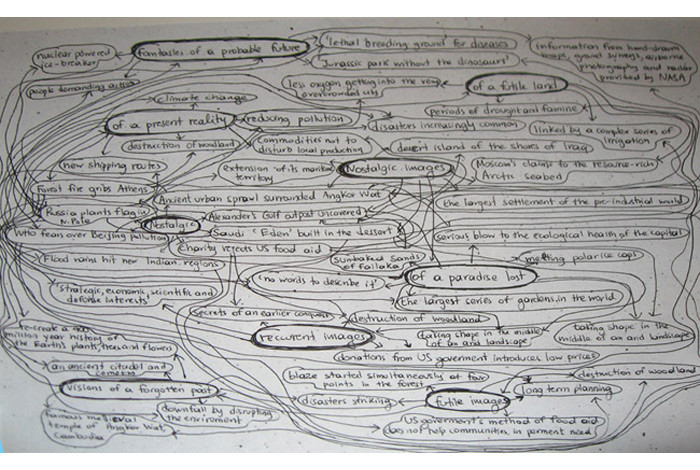 nuclear powered
ice-breaker
fantasies of a probable future
'lethal breeding ground' for diseases
'Jurassic park without the dinosaurs'
information from hand-drawn
maps, ground surveys, airborne
photography and radar
provided by NASA
people demanding action
climate change
less oxygen getting into the very
overcrowded city
of a futile land
periods of drought and famine
of a present reality
reducing pollution
disasters increasingly common
linked by a complex series of
irrigation
destruction of woodland
Commodities not to
disturb local production
desert island of the shores of Iraq
new shipping routes
extension of its maritime
territory
Nostalgic images
Moscow's claims to the resource-rich
Arctic seabed
Forest fire grips Athens
Ancient urban sprawl surrounded Angkor Wat
the largest settlement of the pre-industrial world
Russia plants flag in
N. Pole
Nostalgic
Alexander's Gulf outpost uncovered
Saudi 'Eden' built in the dessert
WHO fears over Beijing pollution
Charity rejects US food aid
serious blow to the ecological health of the capital
Flood ruins hit new Indian regions
sunbaked sands
of failaka
melting polar ice caps
'no words to describe it'
of a paradise lost
'strategic, economic, scientific and
defense interests'
the largest series of gardens in the world
secrets of an earlier conquest
destruction of woodland
re-create a 400
million year history of
the Earth's plants, trees and flowers
recurent images
taking shape in the middle
of an arid landscape
taking shape in the
middle of an arid landscape
donations from US goverment introduces low prices
an ancient citadel and
cemetery
blaze started simultaneously at four
points in the forest
destruction of woodland
visions of a forgotten past
long term planning
disasters striking
futile images
downfall by disrupting
the enviroment
famous medieval
temple of Angkor Wat,
Cambodia
US goverment's method of food aid
does not help communities in perment need